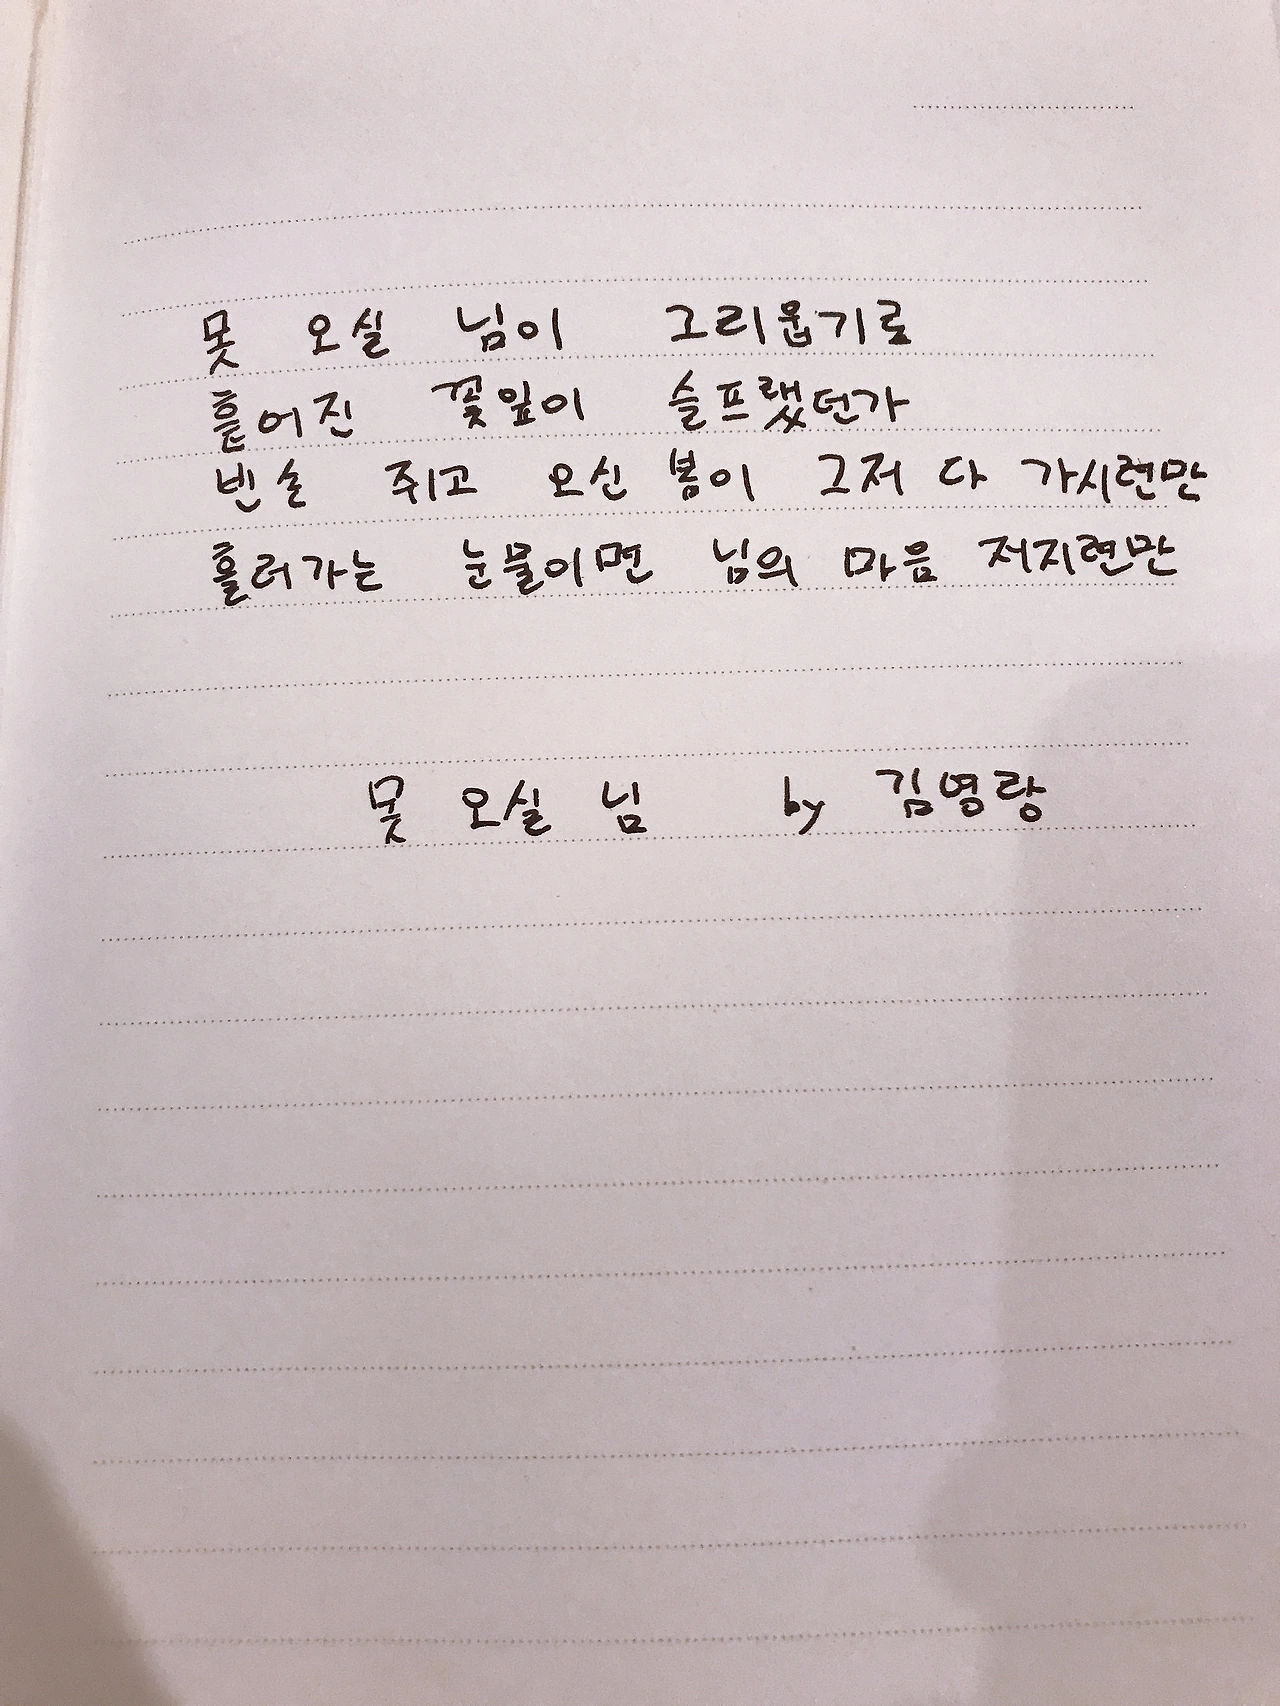 못 오실 님이 그리웁기로
흩어진 꽃잎이 슬프랬던가
빈손 쥐고 오신 봄이 그저 다 가시련만
흘러가는 눈물이면 님의 마음 저지련만
못 오실 님 by 김영랑